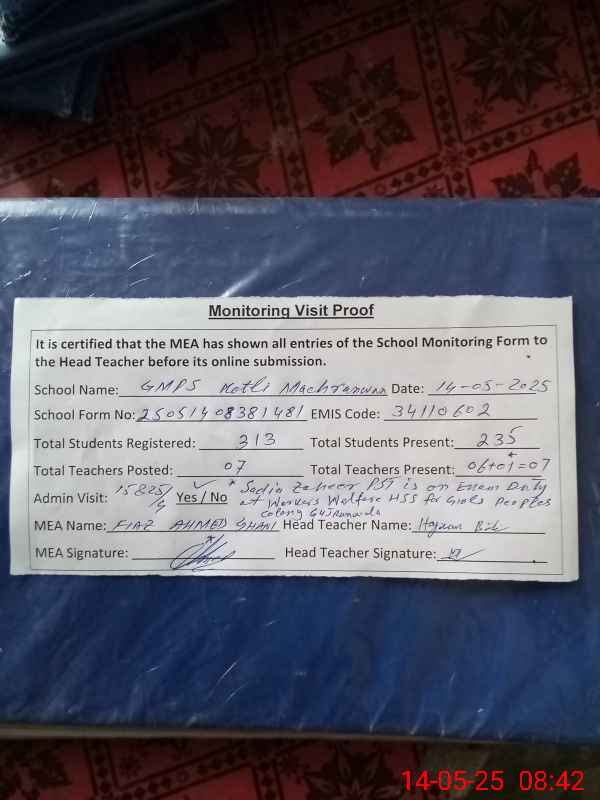 Monitoring Visit Proof
It is certified that the MEA has shown all entries of the School Monitoring Form to
the Head Teacher before its online submission.
School Name: GMPS Kotli Machranwan Date: 14-05-2025
School Form No: 25051408381481 EMIS Code: 34110602
Total Students Registered: 313 Total Students Present: 235
Total Teachers Posted: 07 Total Teachers Present: 06+01=07
Admin Visit: Yes / No * Sadia Zaheer PST is on Exam Duty
at Workers Welfare HSS for Girls Peoples
colony GUJRanwala
MEA Name: FIAZ AHMED GHANI Head Teacher Name:
MEA Signature: Head Teacher Signature:
14-05-25 08:42